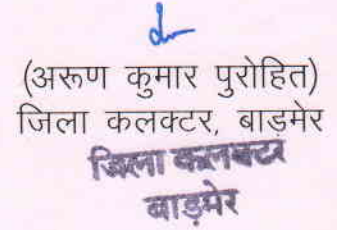 (अरूण कुमार पुरोहित)
जिला कलक्टर, बाड़मेर
जिला कलक्टर
बाड़मेर